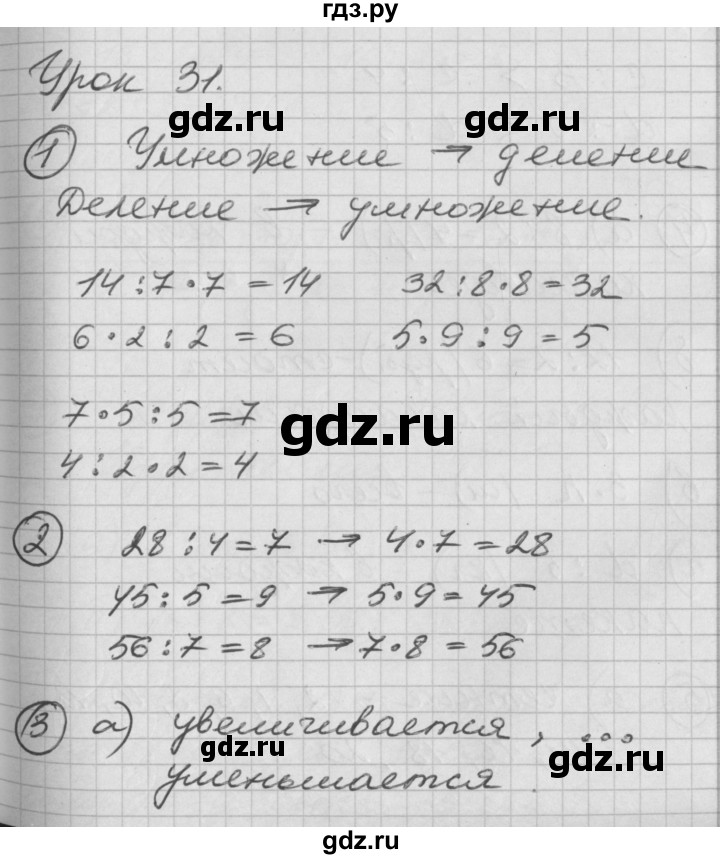 гдз.ру
Урок 31.
gdz.ru gdz.ru
1 Умножение → деление
Деление → умножение.
14:7•7=14 32:8•8=32
6•2:2=6 5•9:9=5
7•5:5=7
gdz.ru
4:2•2=4
2 28:4=7 → 4•7=28
45:5=9 → 5•9=45
56:7=8 → 7•8=56
3 а) увеличивается, ...
gdz.ru gdz.ru
уменьшается.
gdz.ru